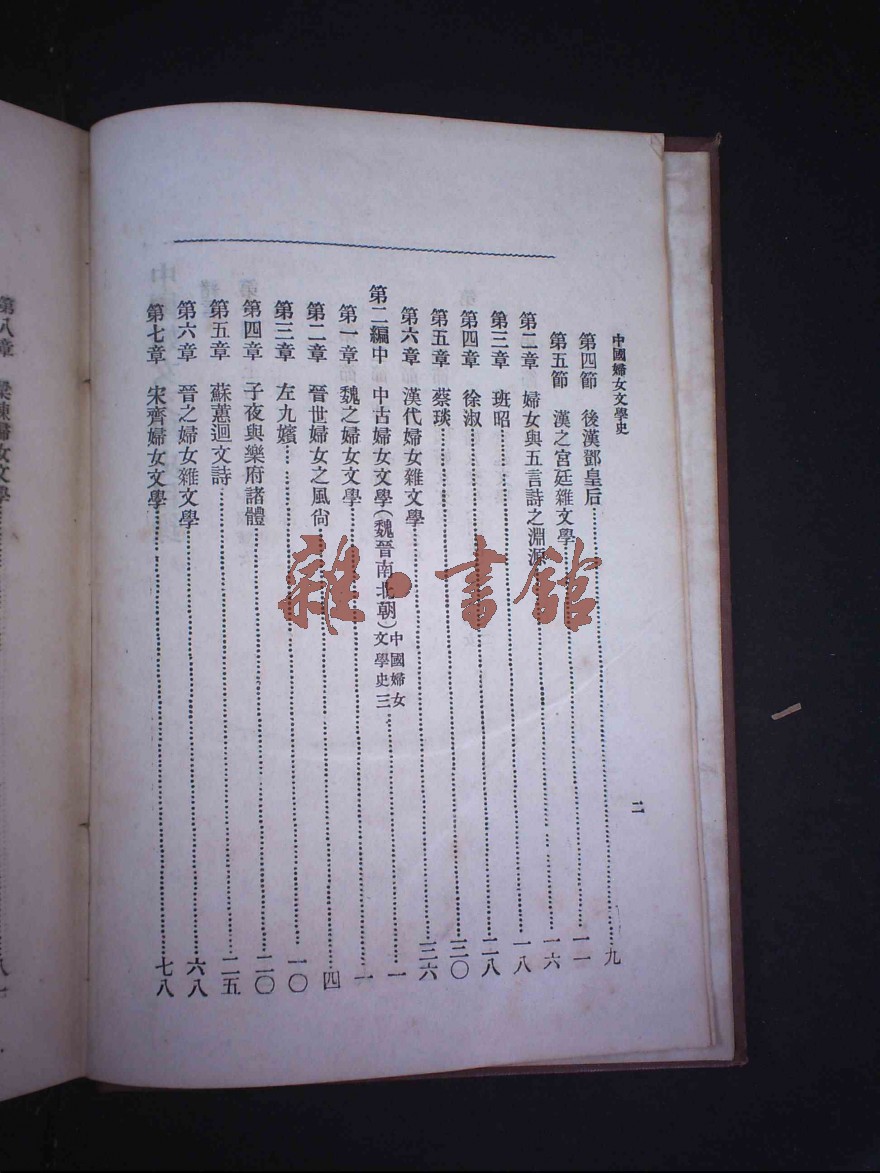 中國婦女文學史
二
第四節 後漢鄧皇后……九
第五節 漢之宮廷雜文學……一一
第二章 婦女與五言詩之淵源……一六
第三章 班昭……一八
第四章 徐淑……二八
第五章 蔡琰……三〇
第六章 漢代婦女雜文學……三六
第二編中 中古婦女文學(魏晉南北朝)中國婦女文學史三……一
第一章 魏之婦女文學……一
第二章 晉世婦女之風尙……四
第三章 左九嬪……一〇
第四章 子夜與樂府諸體……二〇
第五章 蘇蕙迴文詩……二五
第六章 晉之婦女雜文學……六八
第七章 宋齊婦女文學……七八
第八章 梁陳婦女文學
雜·書館